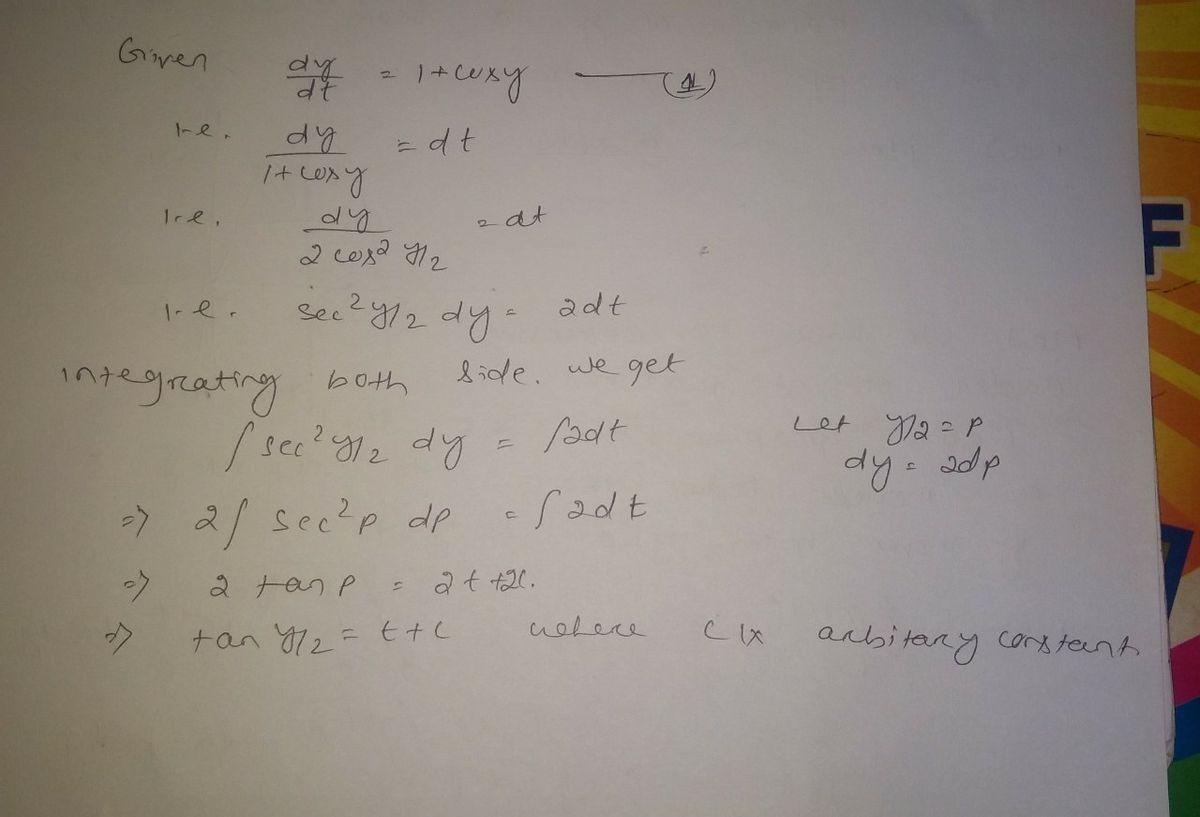 Given dy/dt = 1 + cos y —— (1)
i.e. dy/(1 + cos y) = dt
i.e. dy/(2 cos² y/2) = dt
i.e. sec² y/2 dy = 2dt
integrating both side. we get
∫ sec² y/2 dy = ∫2dt
Let y/2 = p
dy = 2dp
=> 2∫ sec² p dp = ∫ 2dt
=> 2 tan p = 2t + 2c.
=> tan y/2 = t + c where c is arbitary constant
F